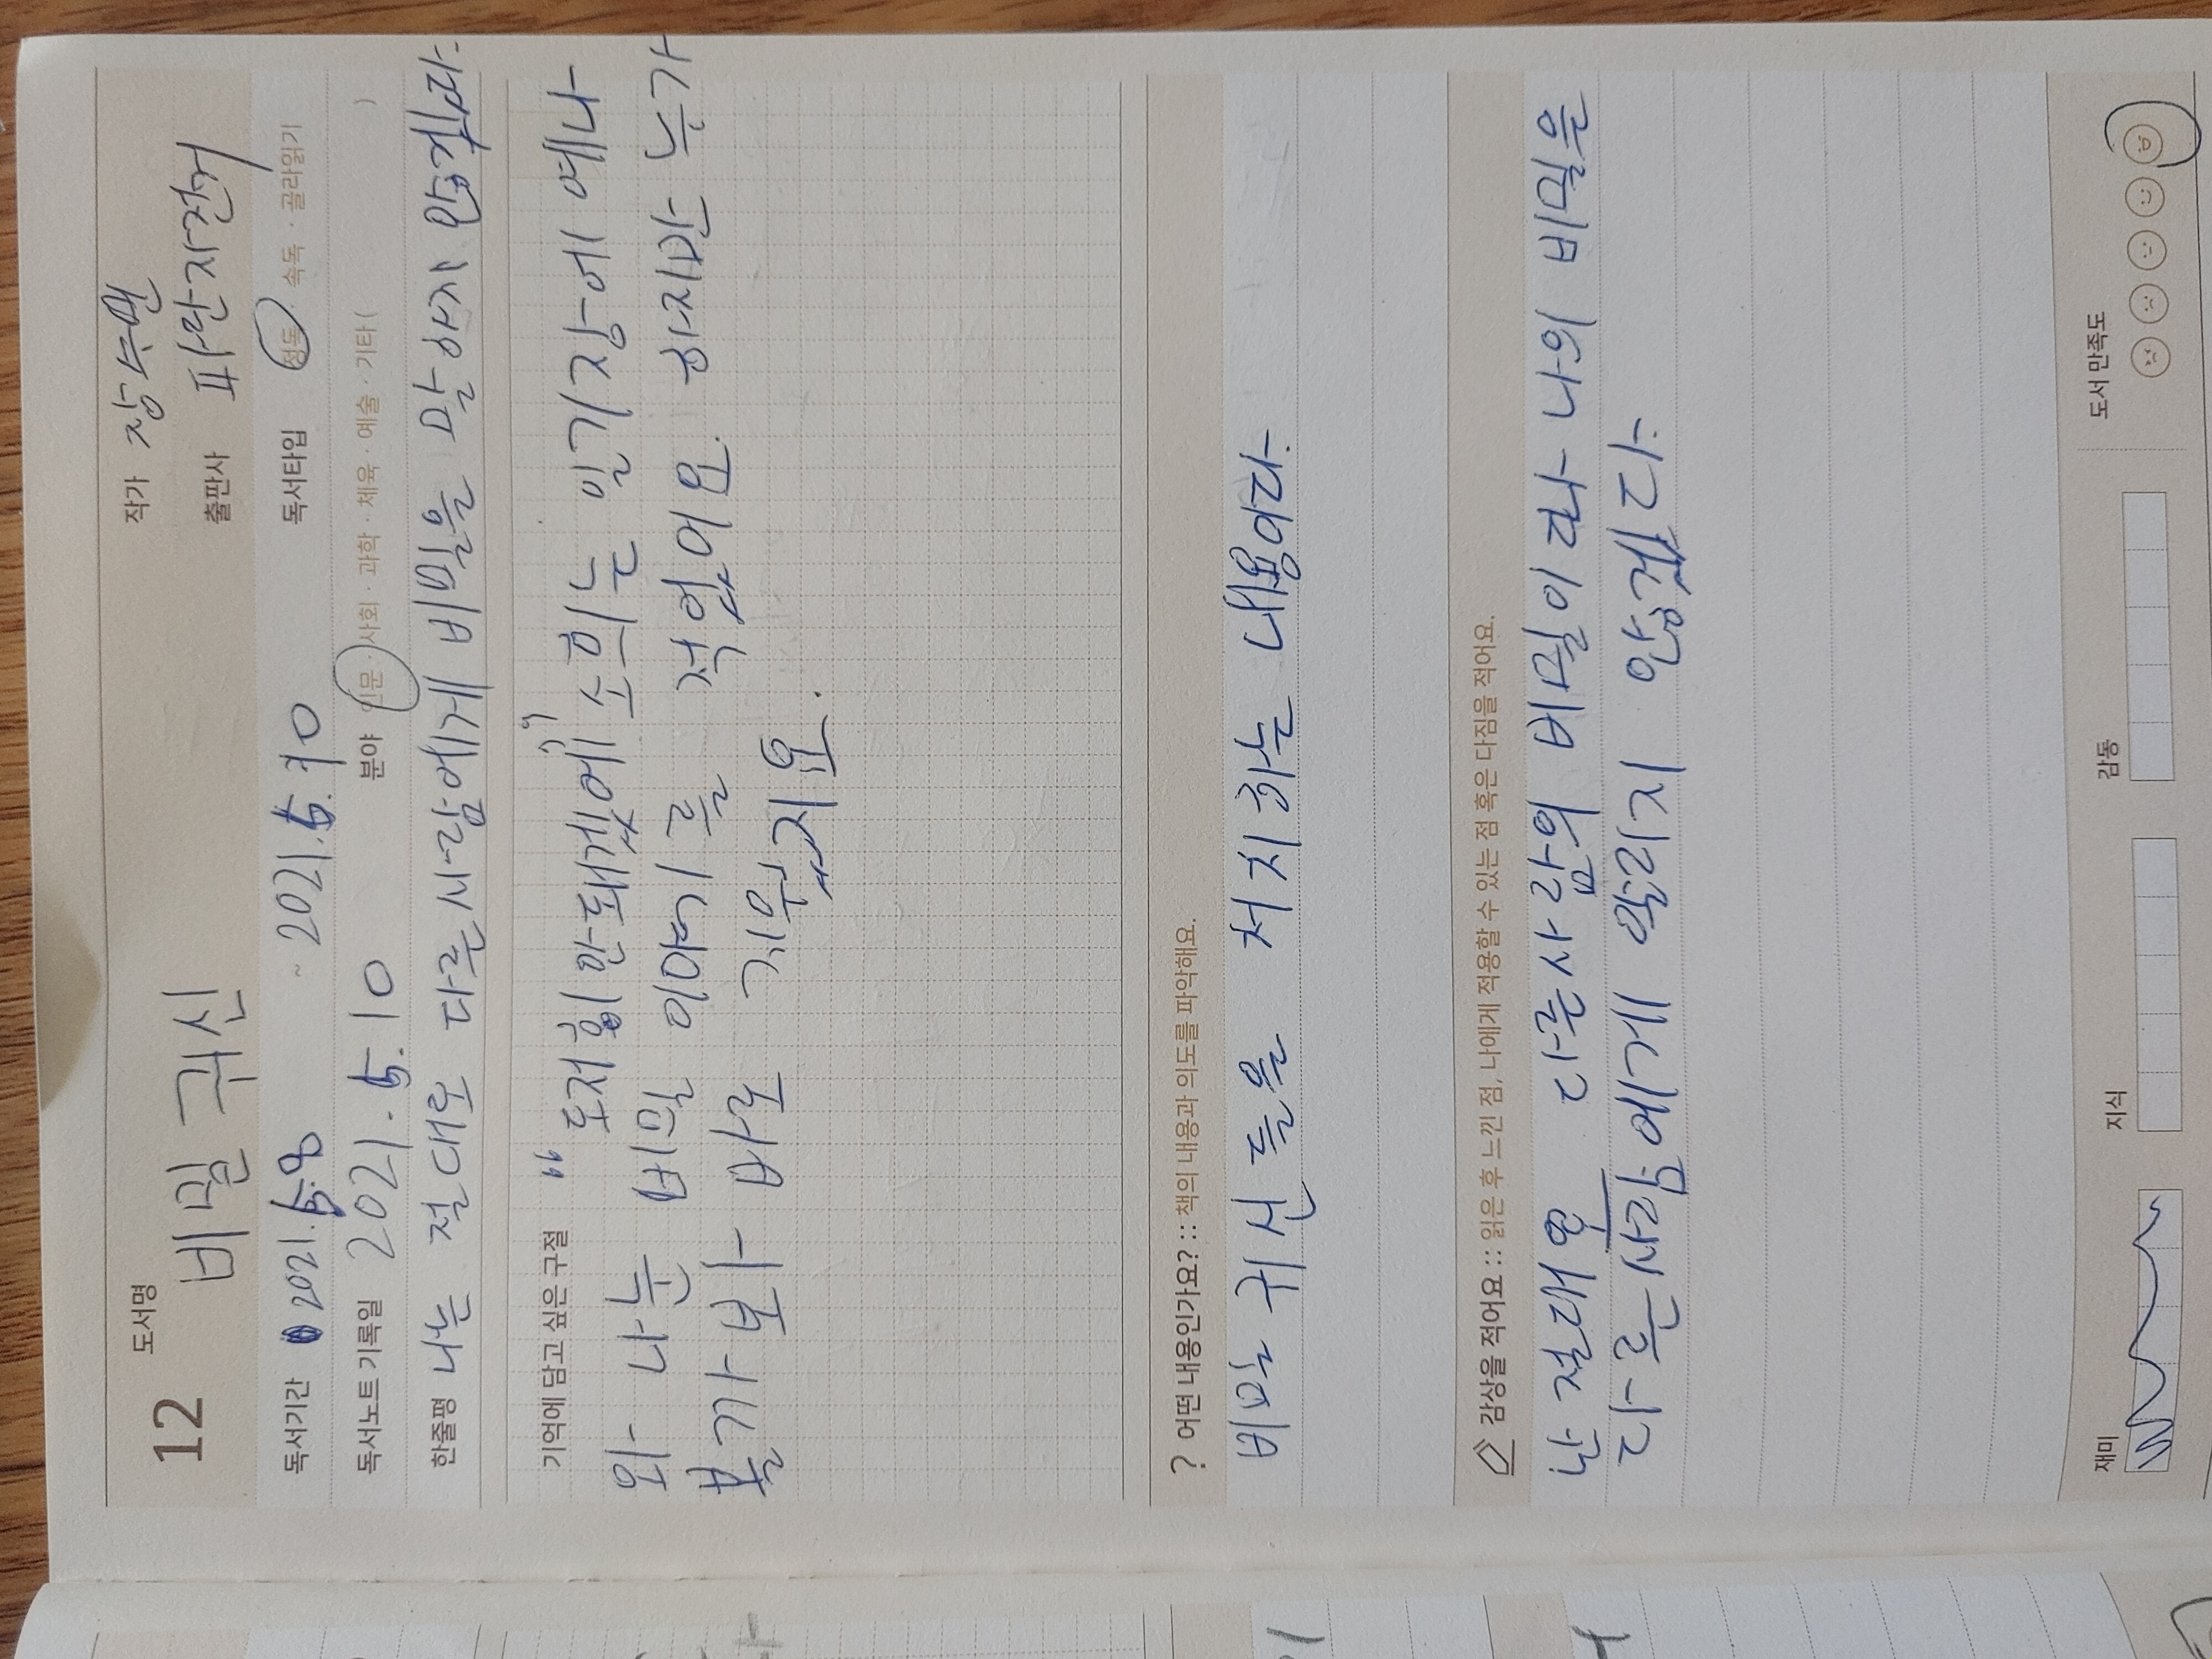 12 도서명 비밀 귀신
작가 장수민
출판사 파란자전거
독서기간 2021.5.8 ~ 2021.5.10
독서타입 정독 · 속독 · 골라읽기
독서노트 기록일 2021.5.10
분야 인문 · 사회 · 과학 · 체육 · 예술 · 기타 ( )
한줄평 나는 절대로 다른사람에게 비밀을 말하지 않겠다.
기억에 담고 싶은 구절 "도저히 안돼겠어" 소희는 일기장에 예나
와 나눈 비밀 이야기를 적었어요. 하지만 누가
볼까 봐 바로 지웠지요.
? 어떤 내용인가요? :: 책의 내용과 의도를 파악해요.
비밀 귀신들을 처치하는 내용이다.
감상을 적어요 :: 읽은 후 느낀 점, 나에게 적용할 수 있는 점 혹은 다짐을 적어요.
난 절대로 다른사람의 비밀이랑 나의 비밀을
다른사람에게 알리지 않겠다.
재미
지식
감동
도서 만족도